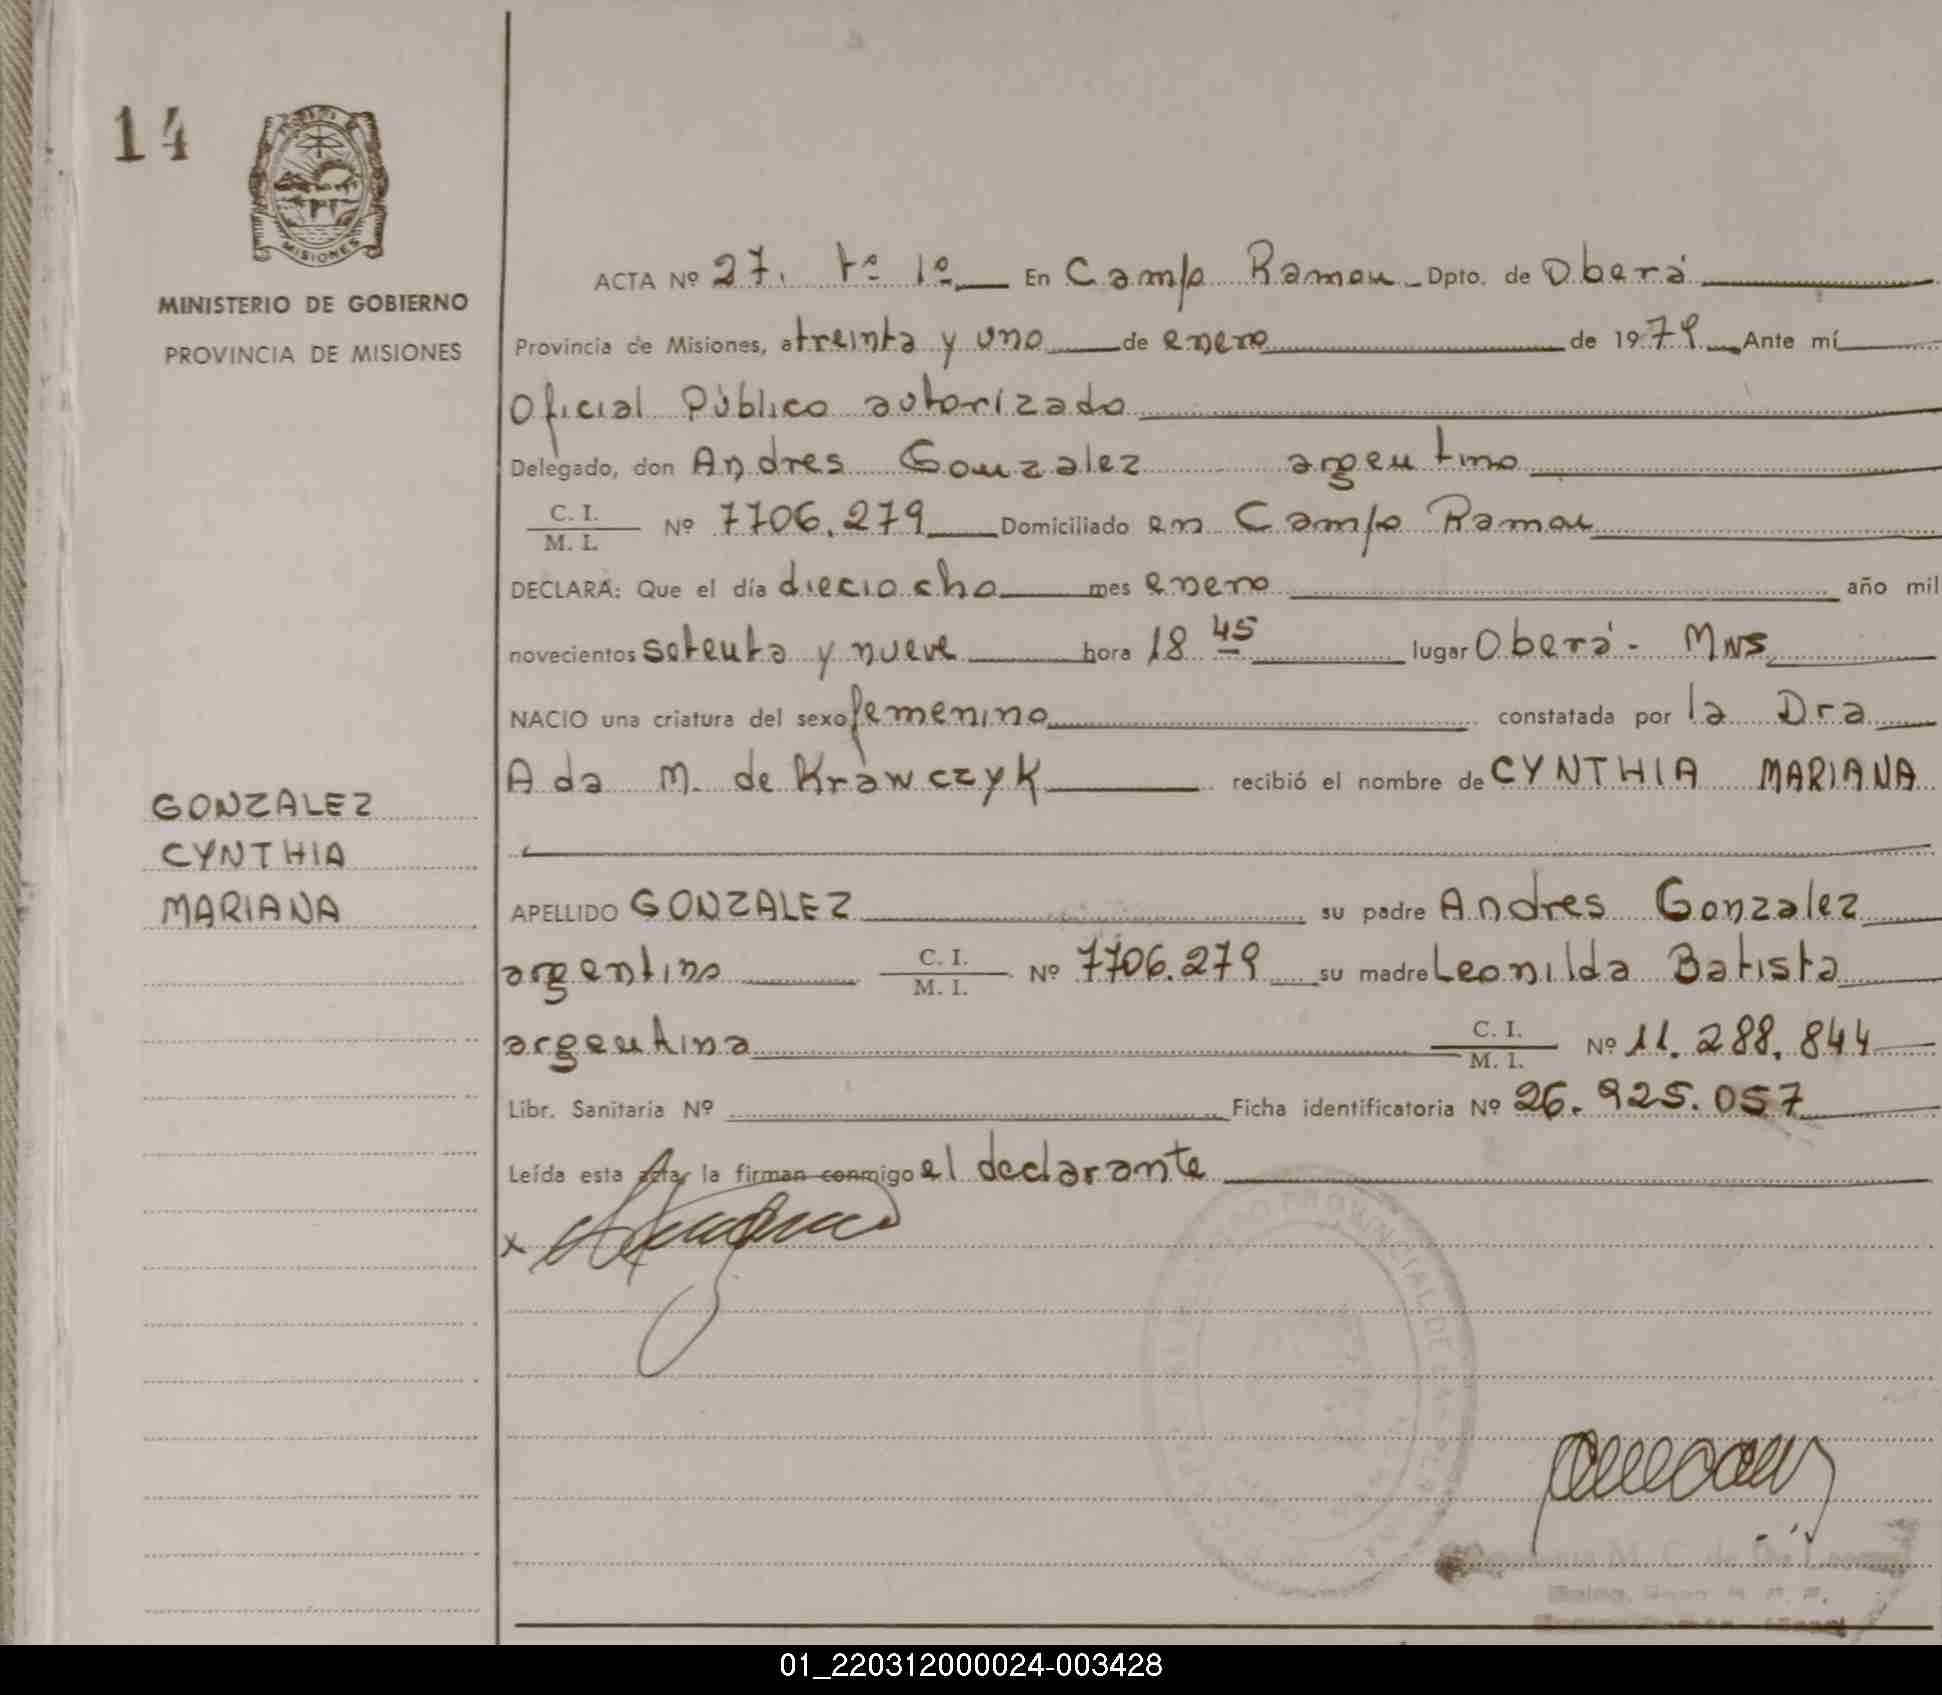 14
MISIONES
MINISTERIO DE GOBIERNO
PROVINCIA DE MISIONES
GONZALEZ
CYNTHIA
MARIANA
ACTA Nº 27. tº 1º En Campo Ramon Dpto. de Oberá
Provincia de Misiones, a treinta y uno de enero de 1979 Ante mí
Oficial Público autorizado
Delegado, don Andres Gonzalez argentino
C. I.
M. I. Nº 7706.279 Domiciliado en Campo Ramon
DECLARA: Que el día dieciocho mes enero año mil
novecientos setenta y nueve hora 18 45 lugar Oberá - Mns
NACIO una criatura del sexo femenino constatada por la Dra
Ada M. de Krawczyk recibió el nombre de CYNTHIA MARIANA
APELLIDO GONZALEZ su padre Andres Gonzalez
argentino C. I. M. I. Nº 7706.279 su madre Leonilda Batista
argentina C. I. M. I. Nº 11.288.844
Libr. Sanitaria Nº Ficha identificatoria Nº 26.925.057
Leída esta acta, la firman conmigo el declarante
x
PROVINCIAL DE
01_220312000024-003428